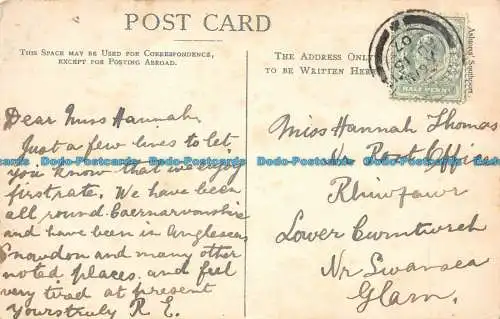 POST CARD
THIS SPACE MAY BE USED FOR CORRESPONDENCE,
EXCEPT FOR POSTING ABROAD.
THE ADDRESS ONLY
TO BE WRITTEN HERE
HALF PENNY
Dear Miss Hannah.
Just a few lines to let
you know that we enjoy
firstrate. We have been
all round Caernarvonshire
and have been in Anglesea,
Snowdon and many other
noted places. and feel
very tired at present
Yourstruly R. E.
Miss Hannah Thomas
Nr Post Office
Rhiwfawr
Lower Cwmtwrch
Nr Swansea
Glam.
Dodo-Postcards Dodo-Postcards Dodo-Postcards Dodo-Postcards